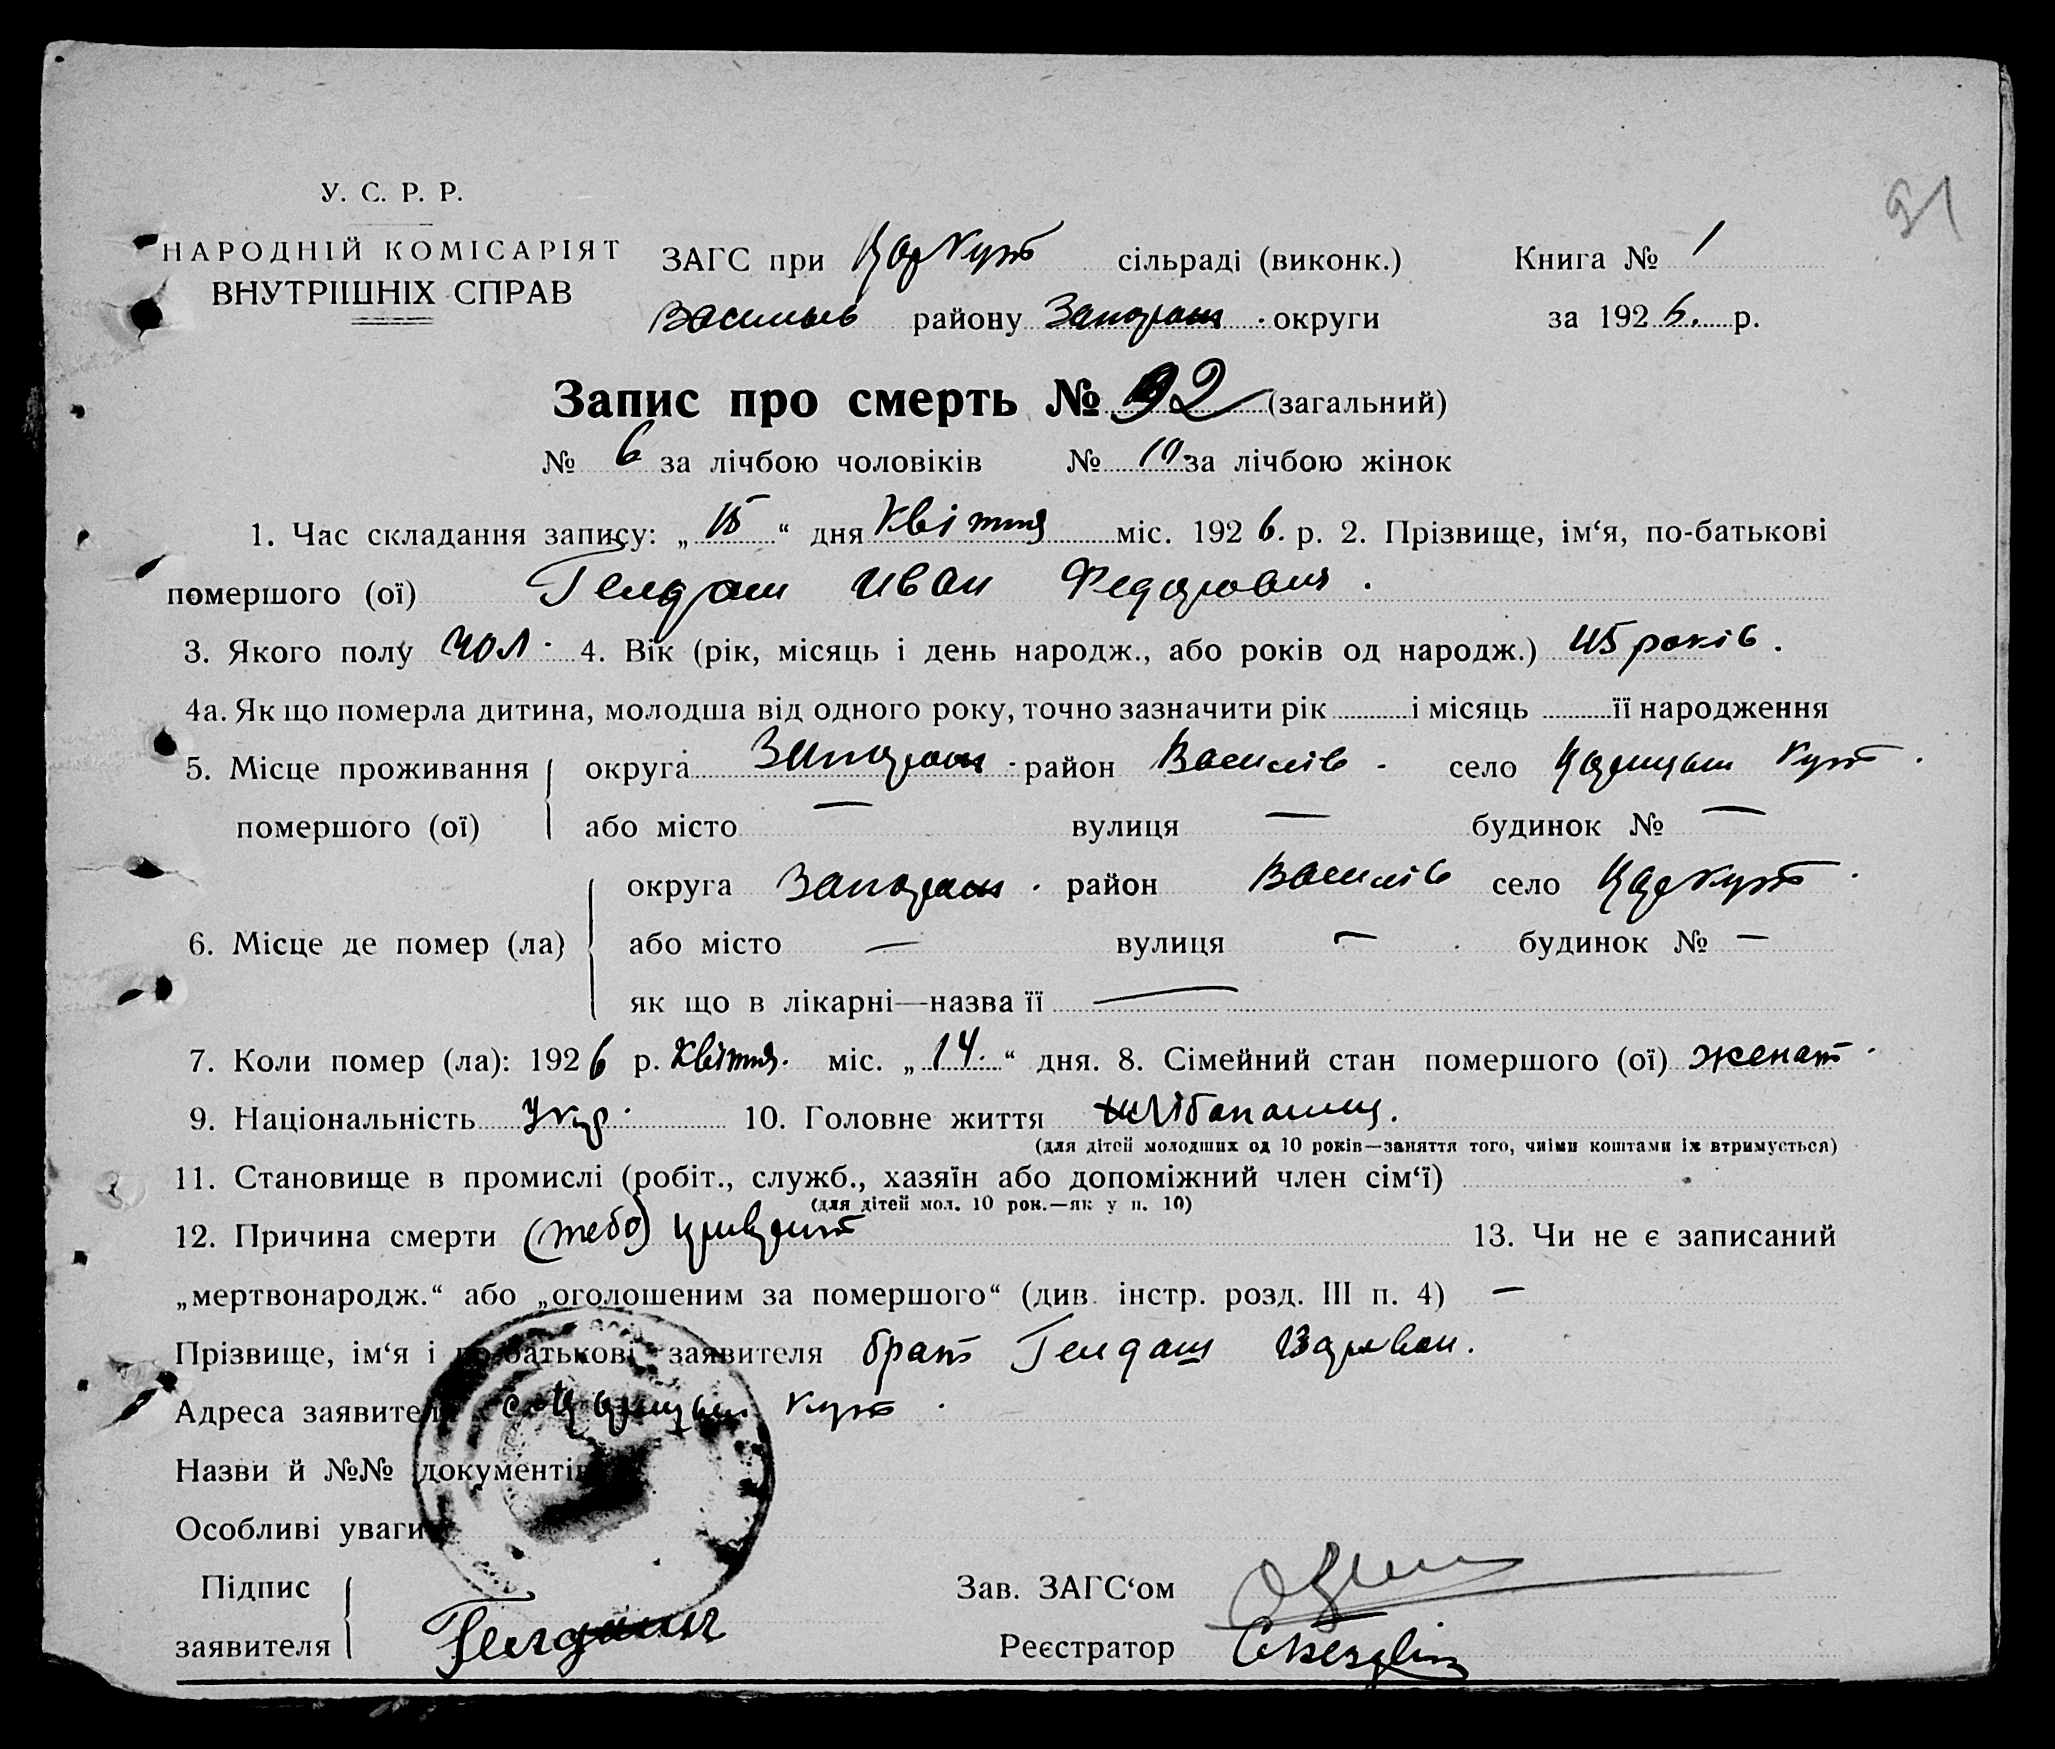 У. С. Р. Р.
НАРОДНІЙ КОМІСАРІЯТ
ВНУТРІШНІХ СПРАВ
ЗАГС при Царкут сільраді (виконк.)
Книга № 1
району Запораж. округи
за 1926. р.
91
Запис про смерть № 92 (загальний)
№ 6 за лічбою чоловіків № 10 за лічбою жінок
1. Час складання запису: „15“ дня Квітня міс. 1926. р. 2. Прізвище, ім‘я, по-батькові
помершого (ої) Гелдаш Иван Федорович.
3. Якого полу чол. 4. Вік (рік, місяць і день народж., або років од народж.) 45 років.
4а. Як що померла дитина, молодша від одного року, точно зазначити рік і місяць її народження
5. Місце проживання помершого (ої) округа Запораж. район Василів. село Царицын Кут.
або місто — вулиця — будинок № —
6. Місце де помер (ла) округа Запораж. район Василів село Царкут.
або місто — вулиця — будинок № —
як що в лікарні—назва її —
7. Коли помер (ла): 1926 р. Квітня. міс. „14.“ дня. 8. Сімейний стан помершого (ої) женат.
9. Національність Укр. 10. Головне життя хлібопашец.
(для дітей молодших од 10 років—заняття того, чиїми коштами їх втримується)
11. Становище в промислі (робіт., служб., хазяїн або допоміжний член сім‘ї)
(для дітей мол. 10 рок.—як у п. 10)
12. Причина смерти 13. Чи не є записаний
„мертвонародж.“ або „оголошеним за помершого“ (див. інстр. розд. III п. 4) —
Прізвище, ім‘я і по-батькові заявителя брат Гелдаш
Адреса заявителя с. Царицын Кут.
Назви й №№ документів
Особливі уваги
Підпис заявителя Гелдаш
Зав. ЗАГС‘ом
Реєстратор